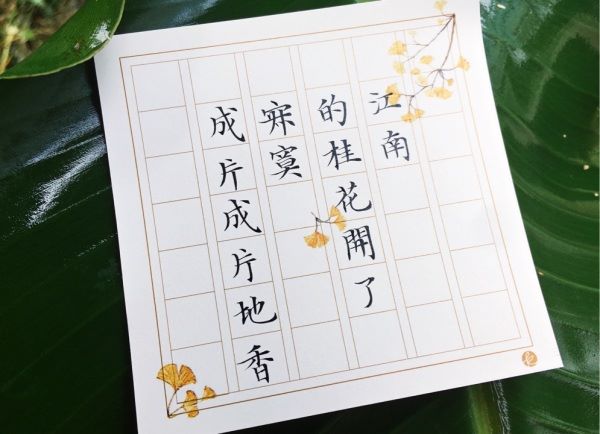 江南
的桂花開了
寂寞
成片成片地香